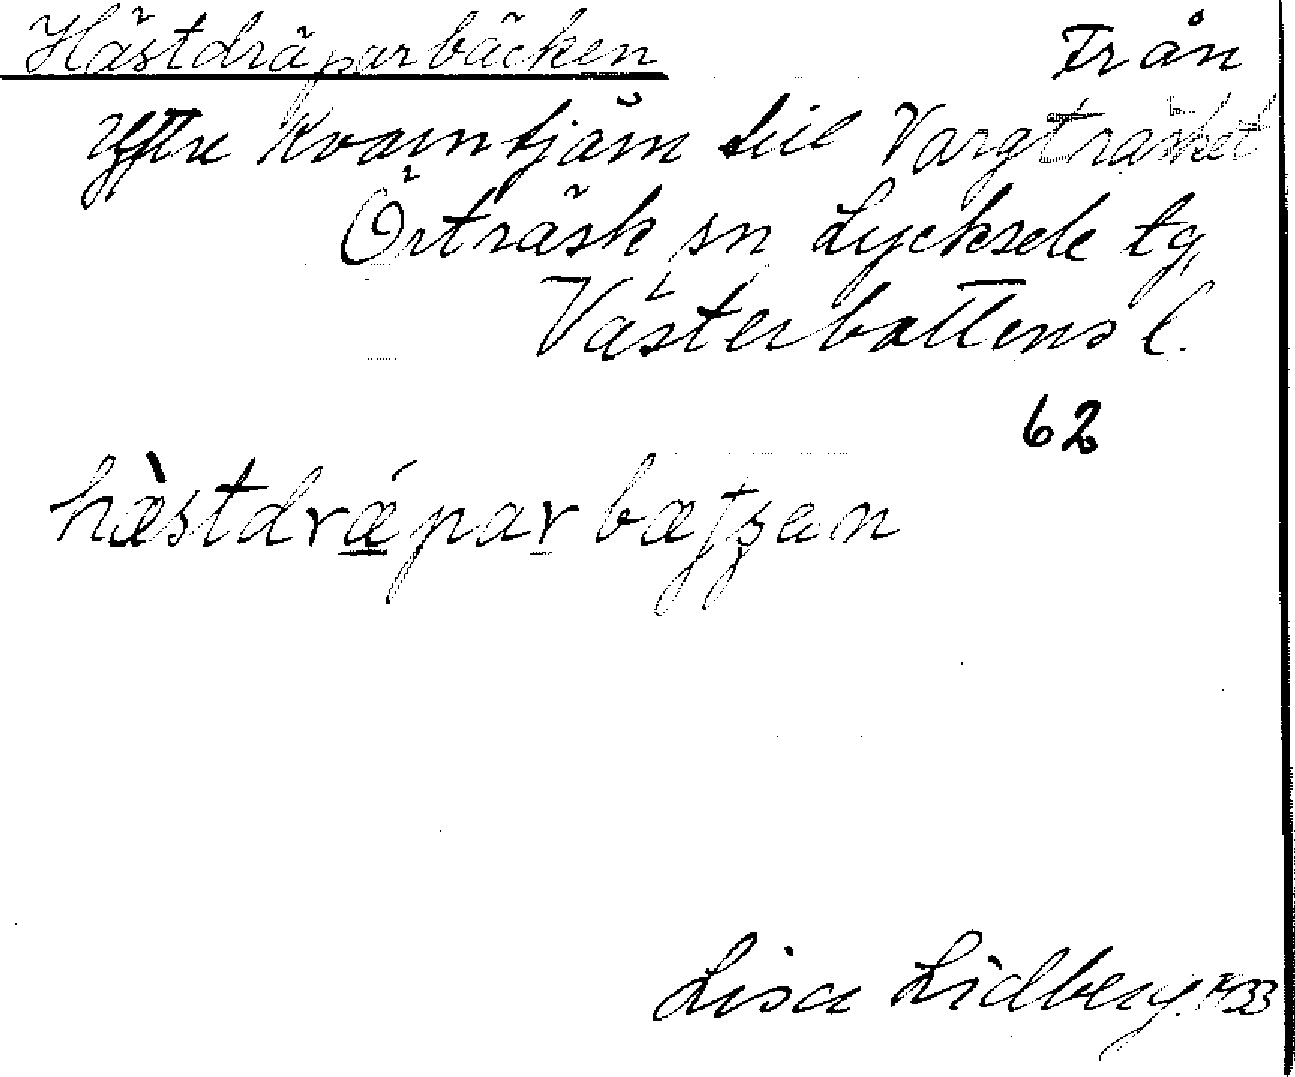 Hästdräparbäcken Från
Yttre Kvarntjärn till Vargträsket
Örträsk sn Lycksele tg,
Västerbottens l.
62
hæ̀stdrǽpar bæʃʂan
Lisa Lidberg 1933